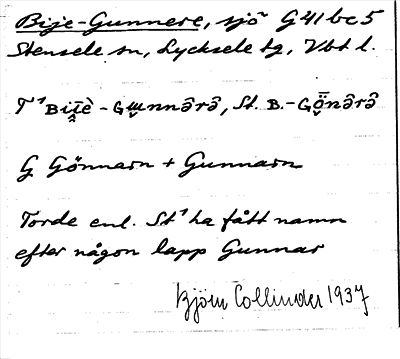 Bije-Gunnere, sjö G41bc5
Stensele sn, Lycksele tg, Vbt l.
T¹ Bi̯i̯è - Gɯnnə̂rə̂, St. B.-Gö̂nə̂rə̂
G Gönnarn + Gunnarn
Torde enl. St¹ ha fått namn
efter någon lapp Gunnar
Björn Collinder 1937